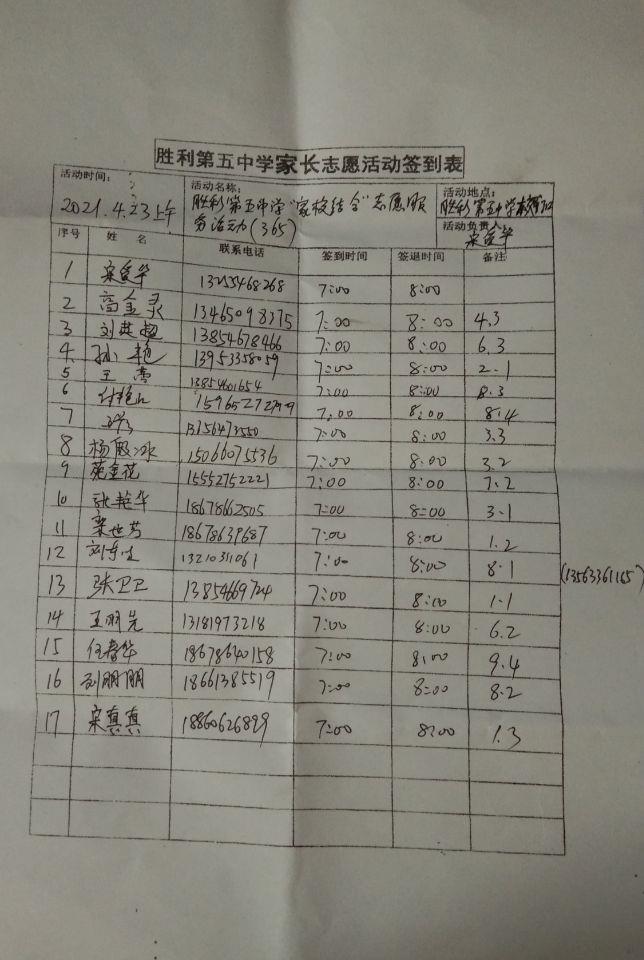 胜利第五中学家长志愿活动签到表
活动时间:
2021.4.23上午
活动名称:
胜利第五中学"家校结合"志愿服
务活动(365)
活动地点:
胜利第五中学校门口
活动负责人:
序号 姓名 联系电话 签到时间 签退时间 备注
1 13255468268 7:00 8:00
2 高金灵 13465098375 7:00 8:00 4.3
3 刘英超 13854678466 7:00 8:00 6.3
4 孙艳 13953358059 7:00 8:00 2.1
5 王 13854601654 7:00 8:00 8.3
6 付艳 7:00 8:00 8.4
7 7:00 8:00 3.3
8 杨殿冰 15066075536 7:00 8:00 3.2
9 金花 15552752221 7:00 8:00 7.2
10 张艳华 18678662505 7:00 8:00 3.1
11 世芳 18678639687 7:00 8:00 1.2
12 刘 13210311061 7:00 8:00 8.1 (13563361165)
13 张卫卫 13854669724 7:00 8:00 1.1
14 王明先 13181973218 7:00 8:00 6.2
15 任春华 18678640158 7:00 8:00 9.4
16 刘朋朋 18661385519 7:00 8:00 8.2
17 宋真真 18860626899 7:00 8:00 1.3